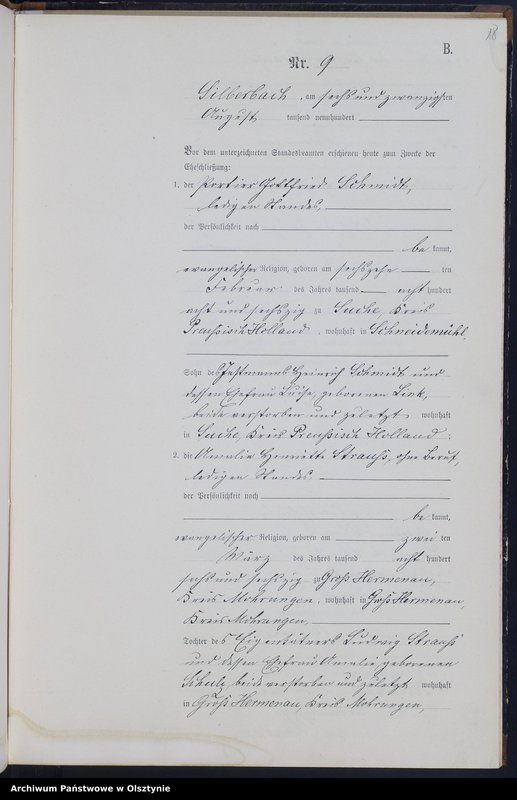 18
B.
Nr. 9
Silberbach, am sechsundzwanzigsten
August tausend neunhundert
Vor dem unterzeichneten Standesbeamten erschienen heute zum Zwecke der
Eheschließung:
1. der Portier Gottfried Schmidt,
ledigen Standes,
der Persönlichkeit nach
be kannt,
evangelischer Religion, geboren am sechszehn ten
Februar des Jahres tausend acht hundert
acht und sechszig zu Sache, Kreis
Preußisch Holland, wohnhaft in Schneidemühl,
Sohn des Instmanns Heinrich Schmidt und
dessen Ehefrau Luise, geborenen Link,
beide verstorben und zuletzt wohnhaft
in Sache, Kreis Preußisch Holland;
2. die Amalie Henriette Strauß, ohne Beruf,
ledigen Standes,
der Persönlichkeit nach
be kannt,
evangelischer Religion, geboren am zwei ten
März des Jahres tausend acht hundert
sechs und sechszig zu Groß Hermenau,
Kreis Mohrungen, wohnhaft in Groß Hermenau,
Kreis Mohrungen,
Tochter des Eigenkätners Ludwig Strauß
und dessen Ehefrau Amalie, geborenen
Schulz, beide verstorben und zuletzt wohnhaft
in Groß Hermenau, Kreis Mohrungen,
Archiwum Państwowe w Olsztynie